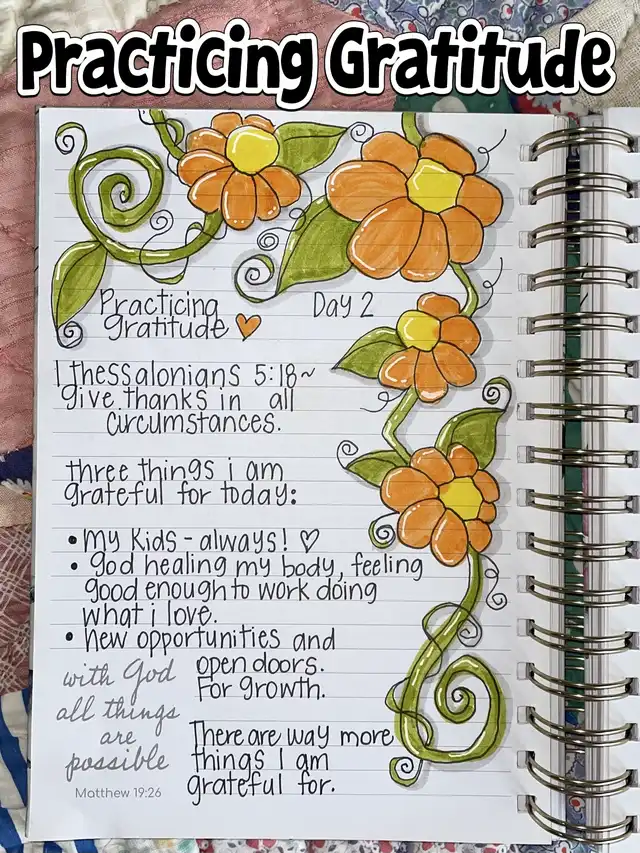 Practicing Gratitude
Practicing
gratitude
Day 2
1 thessalonians 5:18~
give thanks in all
circumstances.
three things i am
grateful for today:
• my kids - always! ♡
• god healing my body, feeling
good enough to work doing
what i love.
• new opportunities and
open doors.
For growth.
with God
all things
are
possible
Matthew 19:26
There are way more
things I am
grateful for.